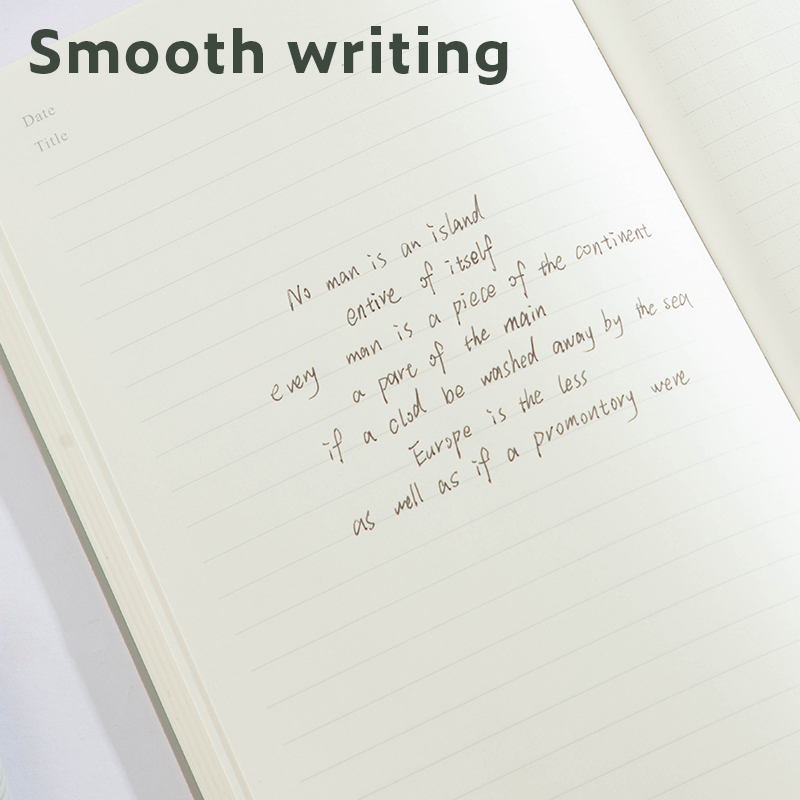 Smooth writing
Date
Title
No man is an island
entire of itself
every man is a piece of the continent
a part of the main
if a clod be washed away by the sea
Europe is the less
as well as if a promontory were